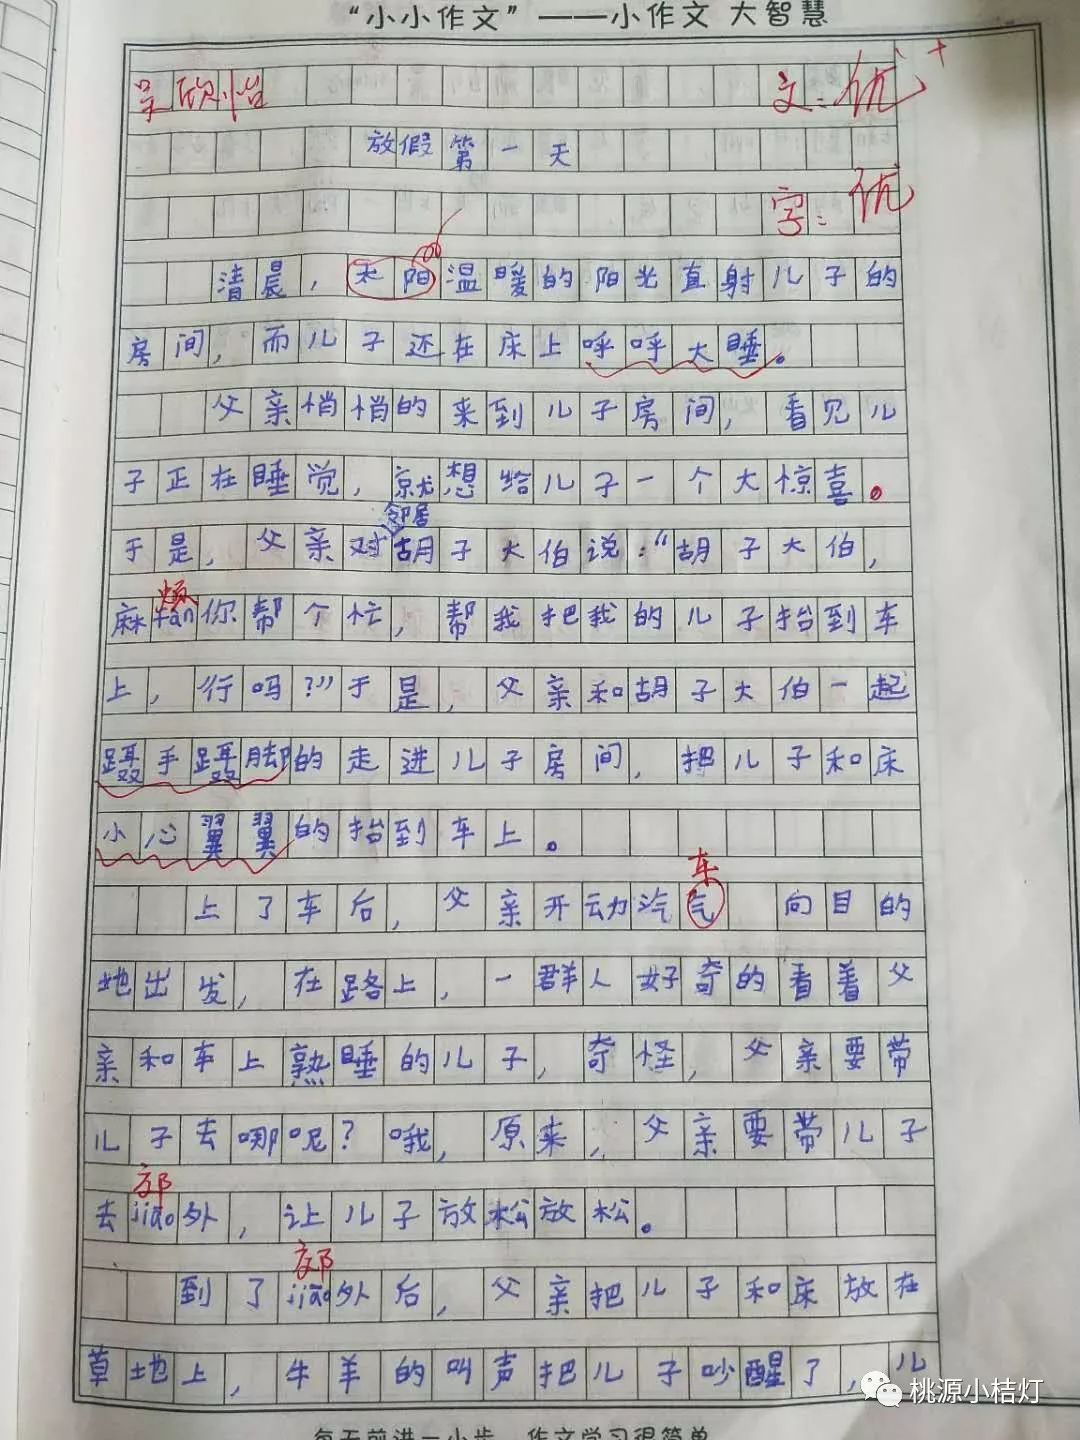 “小小作文”——小作文 大智慧
吴欣怡 文：优+
放假第一天
字：优
清晨，太阳温暖的阳光直射儿子的
房间，而儿子还在床上呼呼大睡。
父亲悄悄的来到儿子房间，看见儿
子正在睡觉，就想给儿子一个大惊喜。
邻居
于是，父亲对胡子大伯说：“胡子大伯，
烦
麻fán你帮个忙，帮我把我的儿子抬到车
上，行吗？”于是，父亲和胡子大伯一起
蹑手蹑脚的走进儿子房间，把儿子和床
小心翼翼的抬到车上。
车
上了车后，父亲开动汽气 向目的
地出发，在路上，一群人好奇的看着父
亲和车上熟睡的儿子，奇怪，父亲要带
儿子去哪呢？哦，原来，父亲要带儿子
郊
去jiāo外，让儿子放松放松。
郊
到了jiāo外后，父亲把儿子和床放在
草地上，牛羊的叫声把儿子吵醒了，儿
桃源小桔灯
每天前进一小步，作文学习很简单